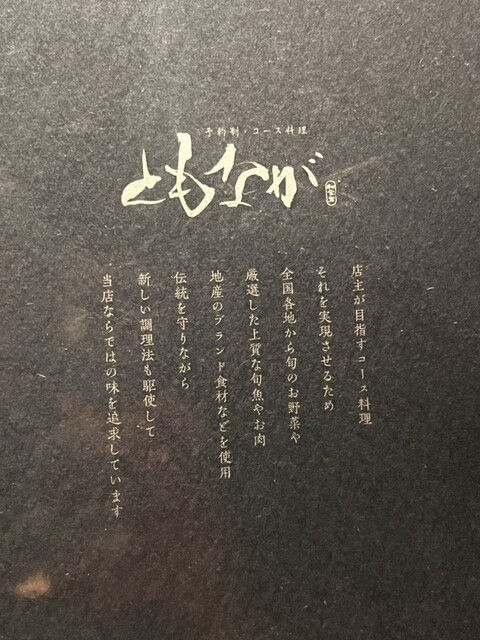 予約制・コース料理
ともなが
店主が目指すコース料理
それを実現させるため
全国各地から旬のお野菜や
厳選した上質な旬魚やお肉
地産のブランド食材などを使用
伝統を守りながら
新しい調理法も駆使して
当店ならではの味を追求しています